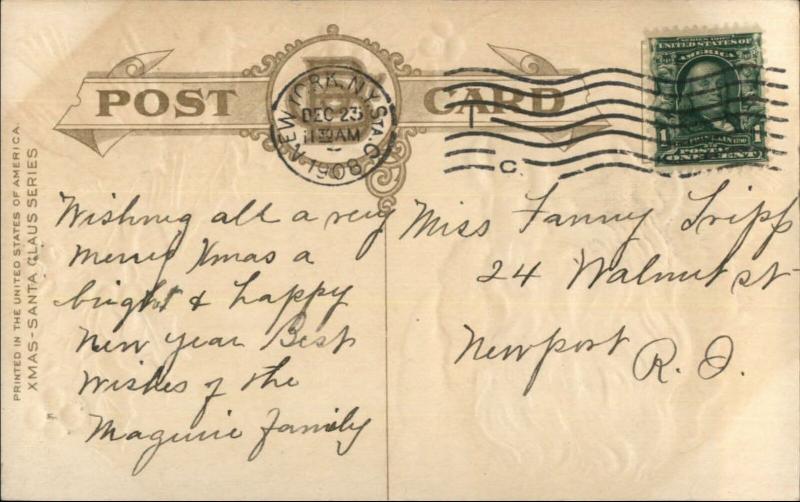 POST CARD
NEW YORK, N.Y. STA. C
DEC 23
11 30 AM
1908
C
SERIES 1902
UNITED STATES OF
AMERICA
1 FRANKLIN 1
ONE CENT
PRINTED IN THE UNITED STATES OF AMERICA.
XMAS-SANTA CLAUS SERIES
Wishing all a very
Merry Xmas a
bright & happy
New Year Best
Wishes of the
Maguire family
Miss Fanny Tripp
24 Walnut st
Newport
R. I.